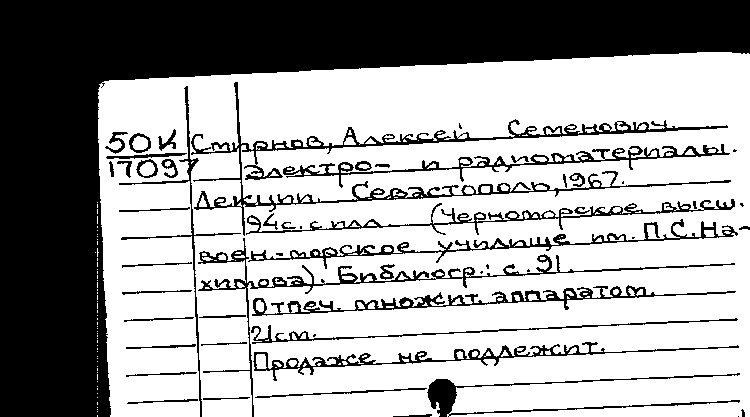 50К Смирнов, Алексей Семенович.
17097 Электро- и радиоматериалы.
Лекции. Севастополь, 1967.
94с. с илл. (Черноморское высш.
воен.-морское училище им. П.С.На-
химова). Библиогр.: с. 91.
Отпеч. множит. аппаратом.
21см.
Продаже не подлежит.